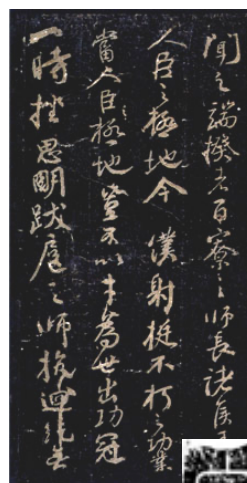 聞之端揆者百寮之師長諸侯王
人臣之極地今僕射挺不朽之功業
當人臣極地豈不以才為世出功冠
一時挫思明跋扈之師抗迴紇無